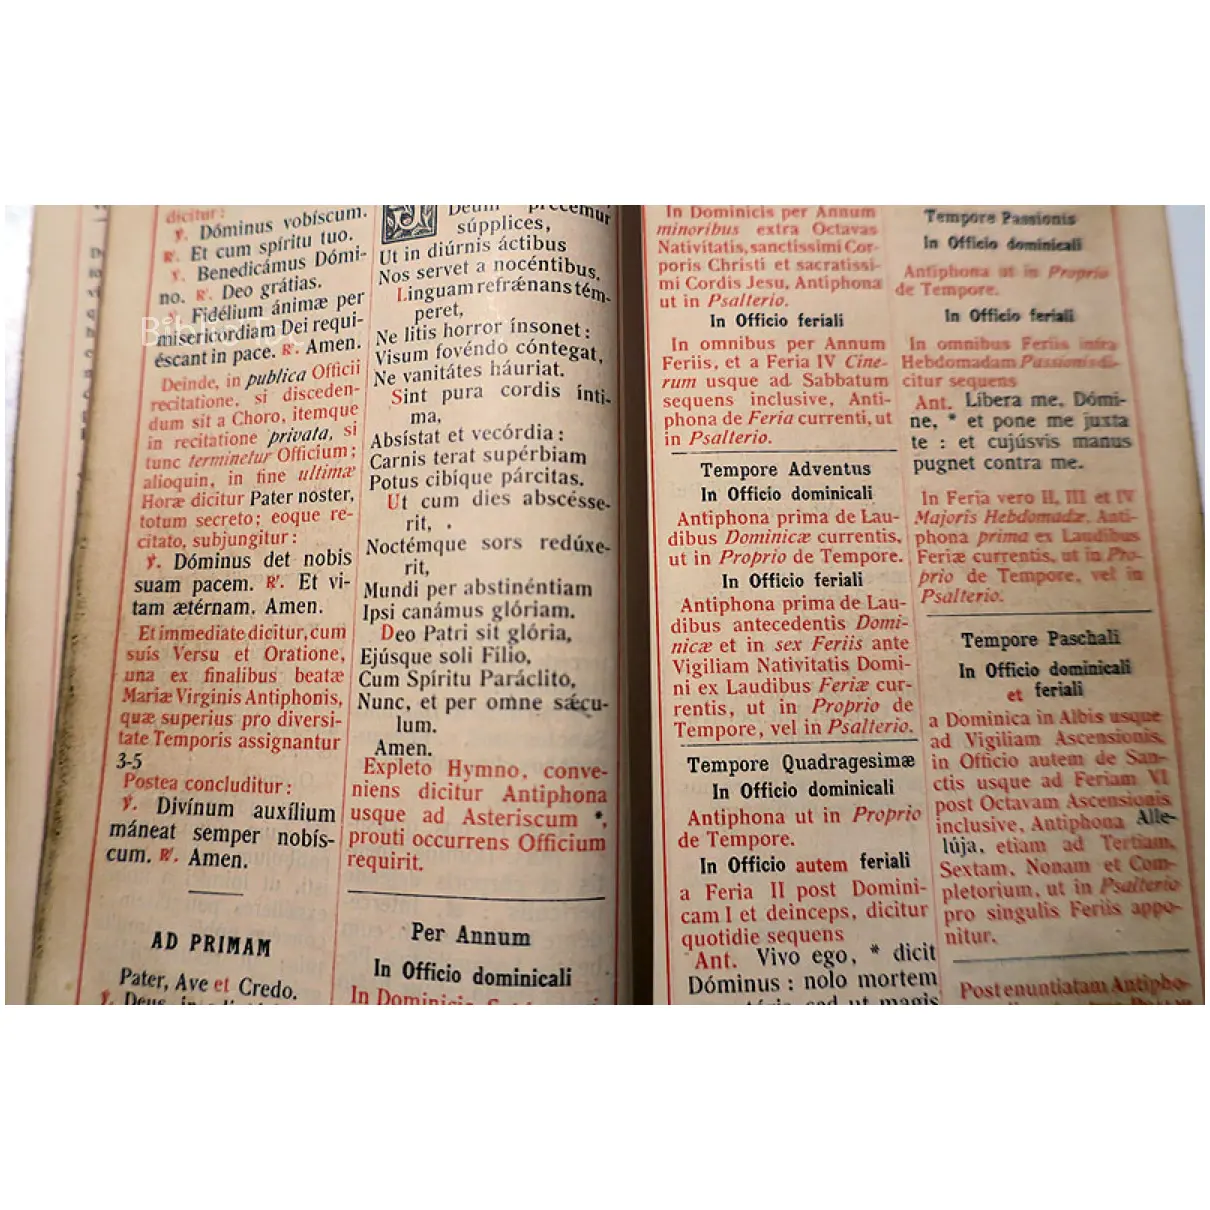 dicitur:
℣. Dóminus vobíscum.
℟. Et cum spíritu tuo.
℣. Benedicámus Dómi-
no. ℟. Deo grátias.
℣. Fidélium ánimæ per
misericordiam Dei requi-
éscant in pace. ℟. Amen.
Deinde, in publica Officii
recitatione, si disceden-
dum sit a Choro, itemque
in recitatione privata, si
tunc terminetur Officium;
alioquin, in fine ultimæ
Horæ dicitur Pater noster,
totum secreto; eoque re-
citato, subjungitur:
℣. Dóminus det nobis
suam pacem. ℟. Et vi-
tam ætérnam. Amen.
Et immediate dicitur, cum
suis Versu et Oratione,
una ex finalibus beatæ
Mariæ Virginis Antiphonis,
quæ superius pro diversi-
tate Temporis assignantur
3-5
Postea concluditur:
℣. Divínum auxílium
máneat semper nobís-
cum. ℟. Amen.
AD PRIMAM
Pater, Ave et Credo.
℣. Deus, in
Deum precémur
súpplices,
Ut in diúrnis áctibus
Nos servet a nocéntibus.
Linguam refrænans tém-
peret,
Ne litis horror ínsonet:
Visum fovéndo cóntegat,
Ne vanitátes háuriat.
Sint pura cordis ínti-
ma,
Absístat et vecórdia:
Carnis terat supérbiam
Potus cibíque párcitas.
Ut cum dies abscésse-
rit,
Noctémque sors redúxe-
rit,
Mundi per abstinéntiam
Ipsi canámus glóriam.
Deo Patri sit glória,
Ejúsque soli Fílio,
Cum Spíritu Paráclito,
Nunc, et per omne sǽcu-
lum.
Amen.
Expleto Hymno, conve-
niens dicitur Antiphona
usque ad Asteriscum *,
prouti occurrens Officium
requirit.
Per Annum
In Officio dominicali
In Dominicis
In Dominicis per Annum
minoribus extra Octavas
Nativitatis, sanctissimi Cor-
poris Christi et sacratissi-
mi Cordis Jesu, Antiphona
ut in Psalterio.
In Officio feriali
In omnibus per Annum
Feriis, et a Feria IV Cine-
rum usque ad Sabbatum
sequens inclusive, Anti-
phona de Feria currenti, ut
in Psalterio.
Tempore Adventus
In Officio dominicali
Antiphona prima de Lau-
dibus Dominicæ currentis,
ut in Proprio de Tempore.
In Officio feriali
Antiphona prima de Lau-
dibus antecedentis Domi-
nicæ et in sex Feriis ante
Vigiliam Nativitatis Domi-
ni ex Laudibus Feriæ cur-
rentis, ut in Proprio de
Tempore, vel in Psalterio.
Tempore Quadragesimæ
In Officio dominicali
Antiphona ut in Proprio
de Tempore.
In Officio autem feriali
a Feria II post Domini-
cam I et deinceps, dicitur
quotidie sequens
Ant. Vivo ego, * dicit
Dóminus: nolo mortem
sed ut magis
Tempore Passionis
In Officio dominicali
Antiphona ut in Proprio
de Tempore.
In Officio feriali
In omnibus Feriis infra
Hebdomadam Passionis di-
citur sequens
Ant. Líbera me, Dómi-
ne, * et pone me juxta
te: et cujúsvis manus
pugnet contra me.
In Feria vero II, III et IV
Majoris Hebdomadæ, Anti-
phona prima ex Laudibus
Feriæ currentis, ut in Pro-
prio de Tempore, vel in
Psalterio.
Tempore Paschali
In Officio dominicali
et feriali
a Dominica in Albis usque
ad Vigiliam Ascensionis,
in Officio autem de San-
ctis usque ad Feriam VI
post Octavam Ascensionis
inclusive, Antiphona Alle-
lúja, etiam ad Tertiam,
Sextam, Nonam et Com-
pletorium, ut in Psalterio
pro singulis Feriis appo-
nitur.
Post enuntiatam Antipho-